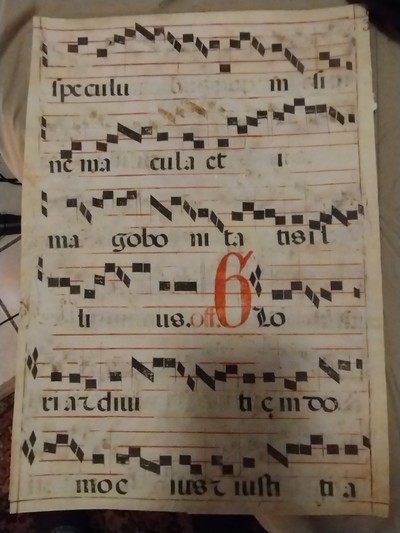 speculu m si
ne ma cula et i
ma gobo ni ta tis il
li us. off. G Lo
ri a ⁊ diui ti ę in do
mo e ius ⁊ iusti ti a